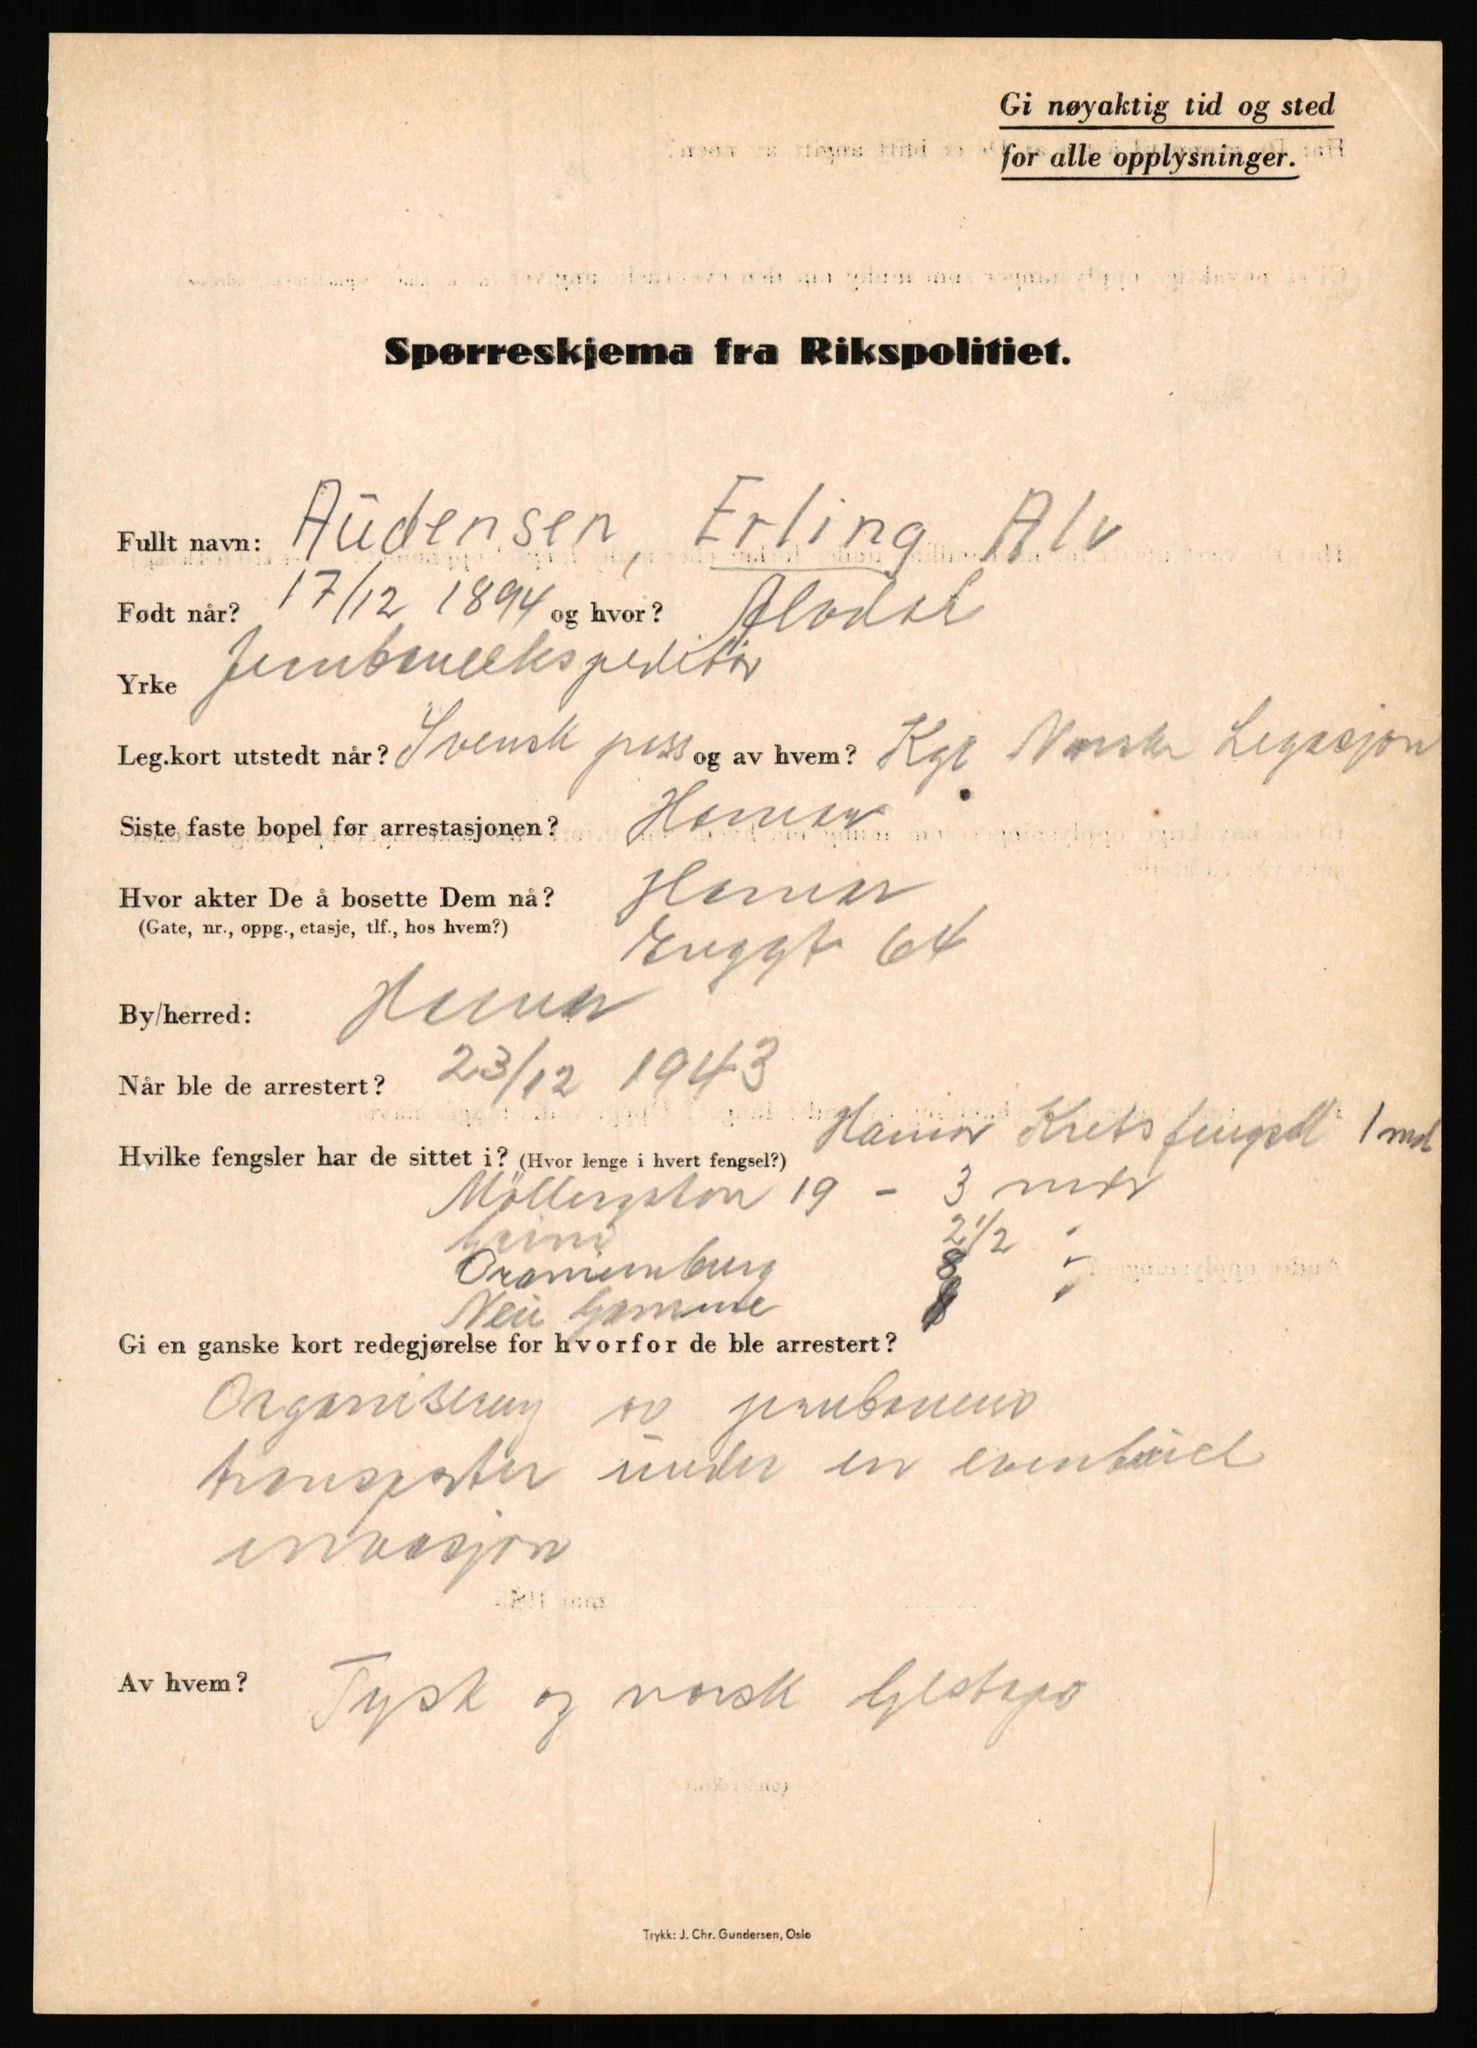 Gi nøyaktig tid og sted
for alle opplysninger.
Spørreskjema fra Rikspolitiet.
Fullt navn: Audensen, Erling Alv
Født når? 17/12 1894 og hvor? Alvdal
Yrke Jernbaneekspeditør
Leg.kort utstedt når? Svensk pass og av hvem? Kgl Norsk Legasjon
Siste faste bopel før arrestasjonen? Hamar
Hvor akter De å bosette Dem nå? Hamar
(Gate, nr., oppg., etasje, tlf., hos hvem?) 64
By/herred: Hamar
Når ble de arrestert? 23/12 1943
Hvilke fengsler har de sittet i? (Hvor lenge i hvert fengsel?) Hamar Kretsfengsel 1 md
Möllergaten 19 - 3 mdr
Grini 2 1/2 "
Oranienburg 8 "
Neue Gamme "
Gi en ganske kort redegjørelse for hvorfor de ble arrestert?
Organisering av jernbanens
transporter under en eventuel
invasjon
Av hvem? Tysk og norsk Gestapo
Trykk: J. Chr. Gundersen, Oslo